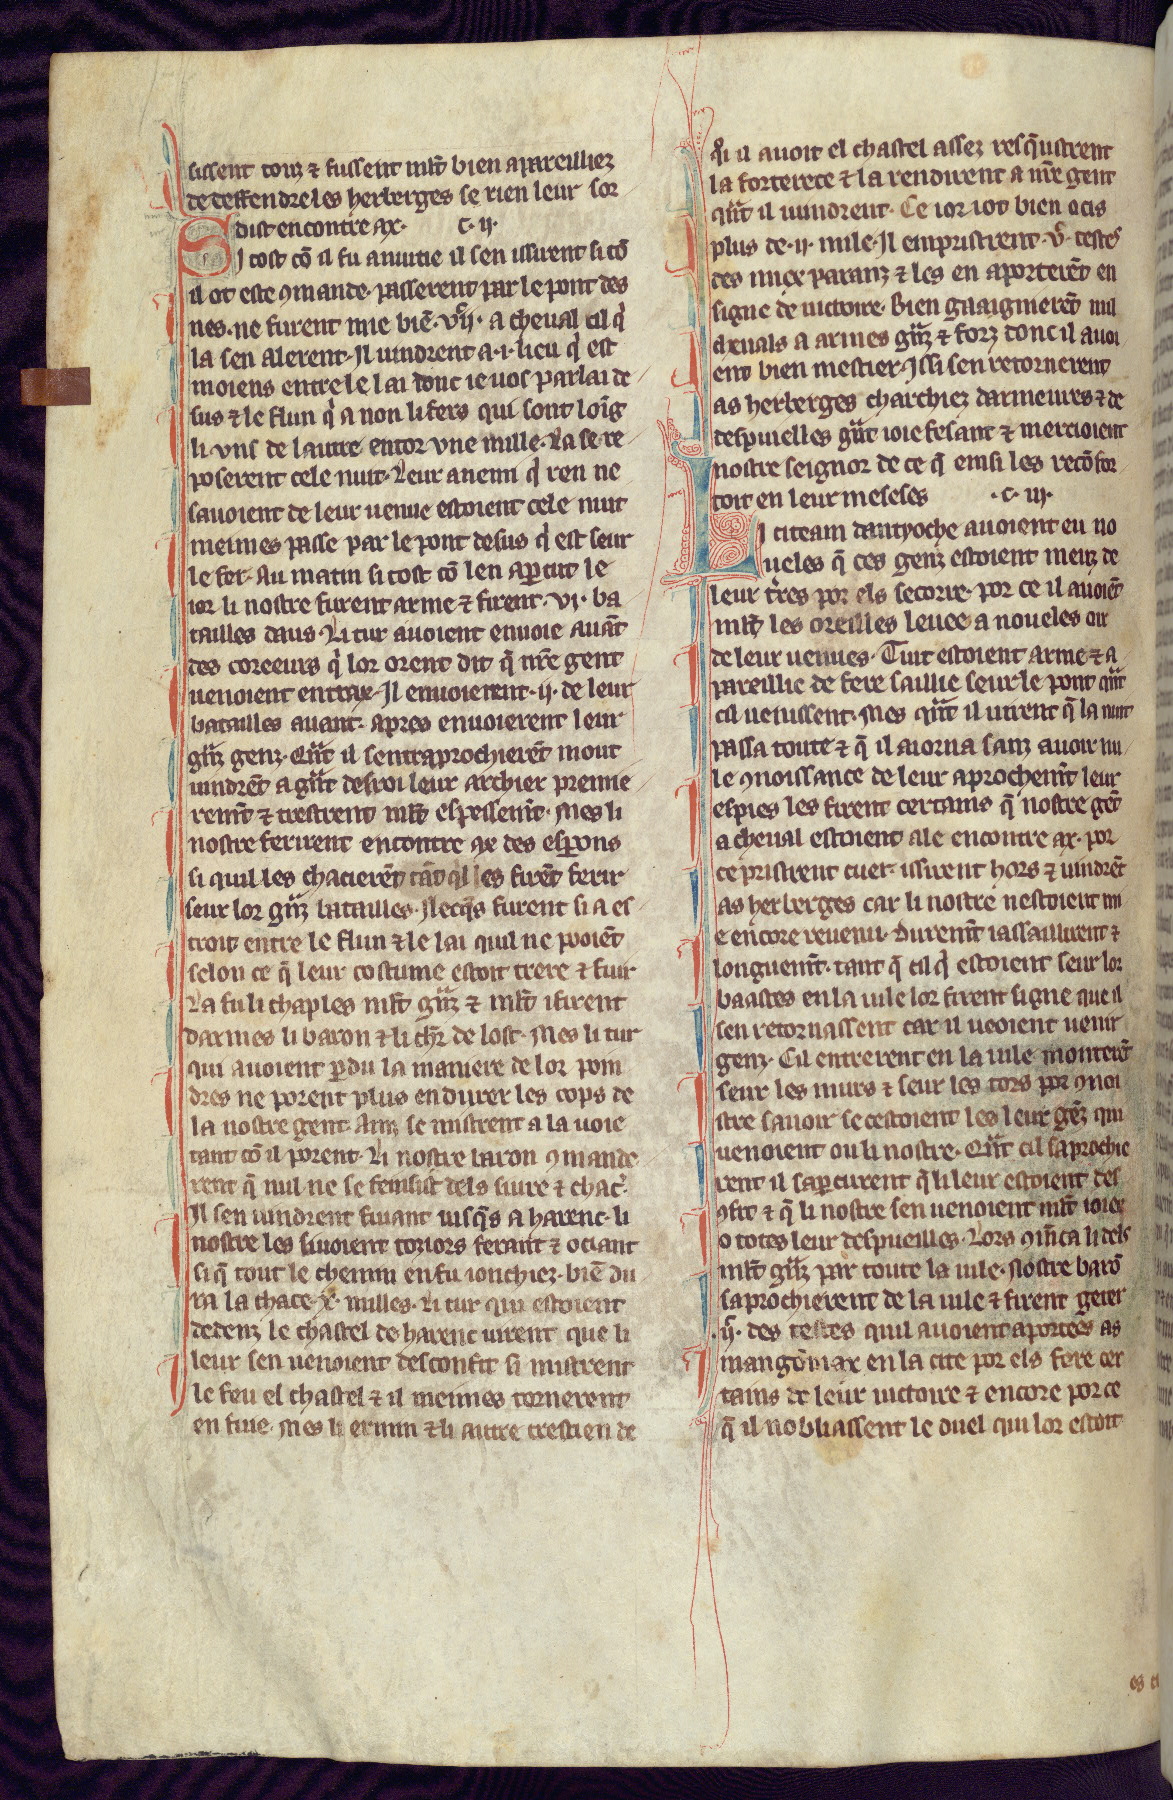 sissent torz ⁊ fussent ml̄t bien apareilliez
de deffendre les herberges se rien leur sor
dist encontre ax· c·ij·
Si tost cō il fu anuitie il sen issirent si cō
il ot este ꝯmande· passerent par le pont des
nes· ne furent mie biē· vijͨ· a cheual cil q̇
la sen alerent· Il uindrent a·i·lieu q̇ est
moiens entre le lai donc ie uos parlai de
sus ⁊ le flun q̇ a non li fers qui sont loīg
li vns de lautre entor vne mille· La se re
poserent cele nuit· Leur anemi q̇ ren ne
sauoient de leur uenue estoient cele nuit
meimes passe par le pont desus q̇ est seur
le fer· Au matin si tost cō len aꝑcut le
ior li nostre furent arme ⁊ firent· vi· ba
tailles daus· Li tur auoient enuoie auāt
des coreeurs q̇ lor orent dit q̄ nr̄e gent
uenoient entrax· Il enuoierent· ij· de leur
batailles auant· apres enuoierent leur
gͣnz genz· Qͣnt il sentraprochierēt mout
uindrēt a gͣnt desroi leur archier premie
remt̄ ⁊ trestrent ml̄t espessemt̄· Mes li
nostre ferirent encontre ax des esꝑons
si quil les chacierēt tāt ql les firēt ferir
seur lor gͣnz batailles· Ilecq̄s furent si a es
troit entre le flun ⁊ le lai quil ne pooiēt
selon ce q̄ leur costume estoit trere ⁊ fuir
La fu li chaples ml̄t gͣnz ⁊ ml̄t i firent
darmes li baron ⁊ li chr̄ de lost· Mes li tur
qui auoient ꝑdu la maniere de lor poin
dres ne porent plus endurer les cops de
la nostre gent· Ainz se mistrent a la uoie
tant cō il porent· Li nostre baron ꝯmande
rent q̄ nul ne se feinsist dels siure ⁊ chac̄·
Il sen uindrent fuiant iusq̄s a harenc· li
nostre les siuoient toziors ferant ⁊ ociant
si q̄ tout le chemin en fu ionchiez· biē du
ra la chace· x· milles· Li tur qui estoient
dedenz le chastel de harenc uirent que li
leur sen uenoient desconfit si mistrent
le feu el chastel ⁊ il meimes tornerent
en fuie· Mes li ermin ⁊ li autre crestien de
qi il auoit el chastel assez resq̄ustrent
la forterece ⁊ la rendirent a nr̄e gent
qͣnt il uindrent· Ce ior i ot bien ocis
plus de· ij· mile· Il empristrent· vͨ· testes
des miex paranz ⁊ les en aporterēt en
signe de uictoire· Bien guaignierēt mil
cheuals a armes gͣnz ⁊ forz donc il auoi
ent bien mestier· Issi sen retornerent
as herberges charchiez darmeures ⁊ de
despuielles gͣnt ioie fesant ⁊ mercioient
nostre seignor de ce q̄ einsi les recōfor
toit en leur meseses ·c· iij·
Li citeain dantyoche auoient eu no
ueles q̄ ces genz estoient meuz de
leur tr̄es por els secorre· por ce il auoiēt
ml̄t les oreilles leuee a noueles oir
de leur uenues· Tuit estoient arme ⁊ a
pareillie de fere saillie seur le pont qͣnt
cil uenissent· Mes qͣnt il uirent q̄ la nuit
passa toute ⁊ q̄ il aiorna sanz auoir nu
le ꝯnoissance de leur aprochemt̄ leur
espies les firent certains q̄ nostre gēt
a cheual estoient ale encontre ax· por
ce pristrent cuer· issirent hors ⁊ uindrēt
as herberges car li nostre nestoient mi
e encore reuenu· Duremt̄ i assaillirent ⁊
longuemt̄· tant q̄ cil q̇ estoient seur lor
baastes en la uile lor firent signe que il
sen retornassent car il ueoient uenir
genz· Cil entrerent en la uile monterēt
seur les murs ⁊ seur les tors por ꝯnoi
stre sauoir se cestoient les leur gēz qui
uenoient ou li nostre· Qͣnt cil saprochie
rent il saꝑcurent q̄ li leur estoient des
ꝯfit ⁊ q̄ li nostre sen uenoient ml̄t ioier
o totes leur despueilles· Lors ꝯmēca li dels
ml̄t gͣnz par toute la uile· Nostre barō
saprochierent de la uile ⁊ firent geter
ijͨ· des testes quil auoient aportees as
mangoniax en la cite por els fere cer
tains de leur uictoire ⁊ encore por ce
q̄ il nobliassent le duel qui lor estoit